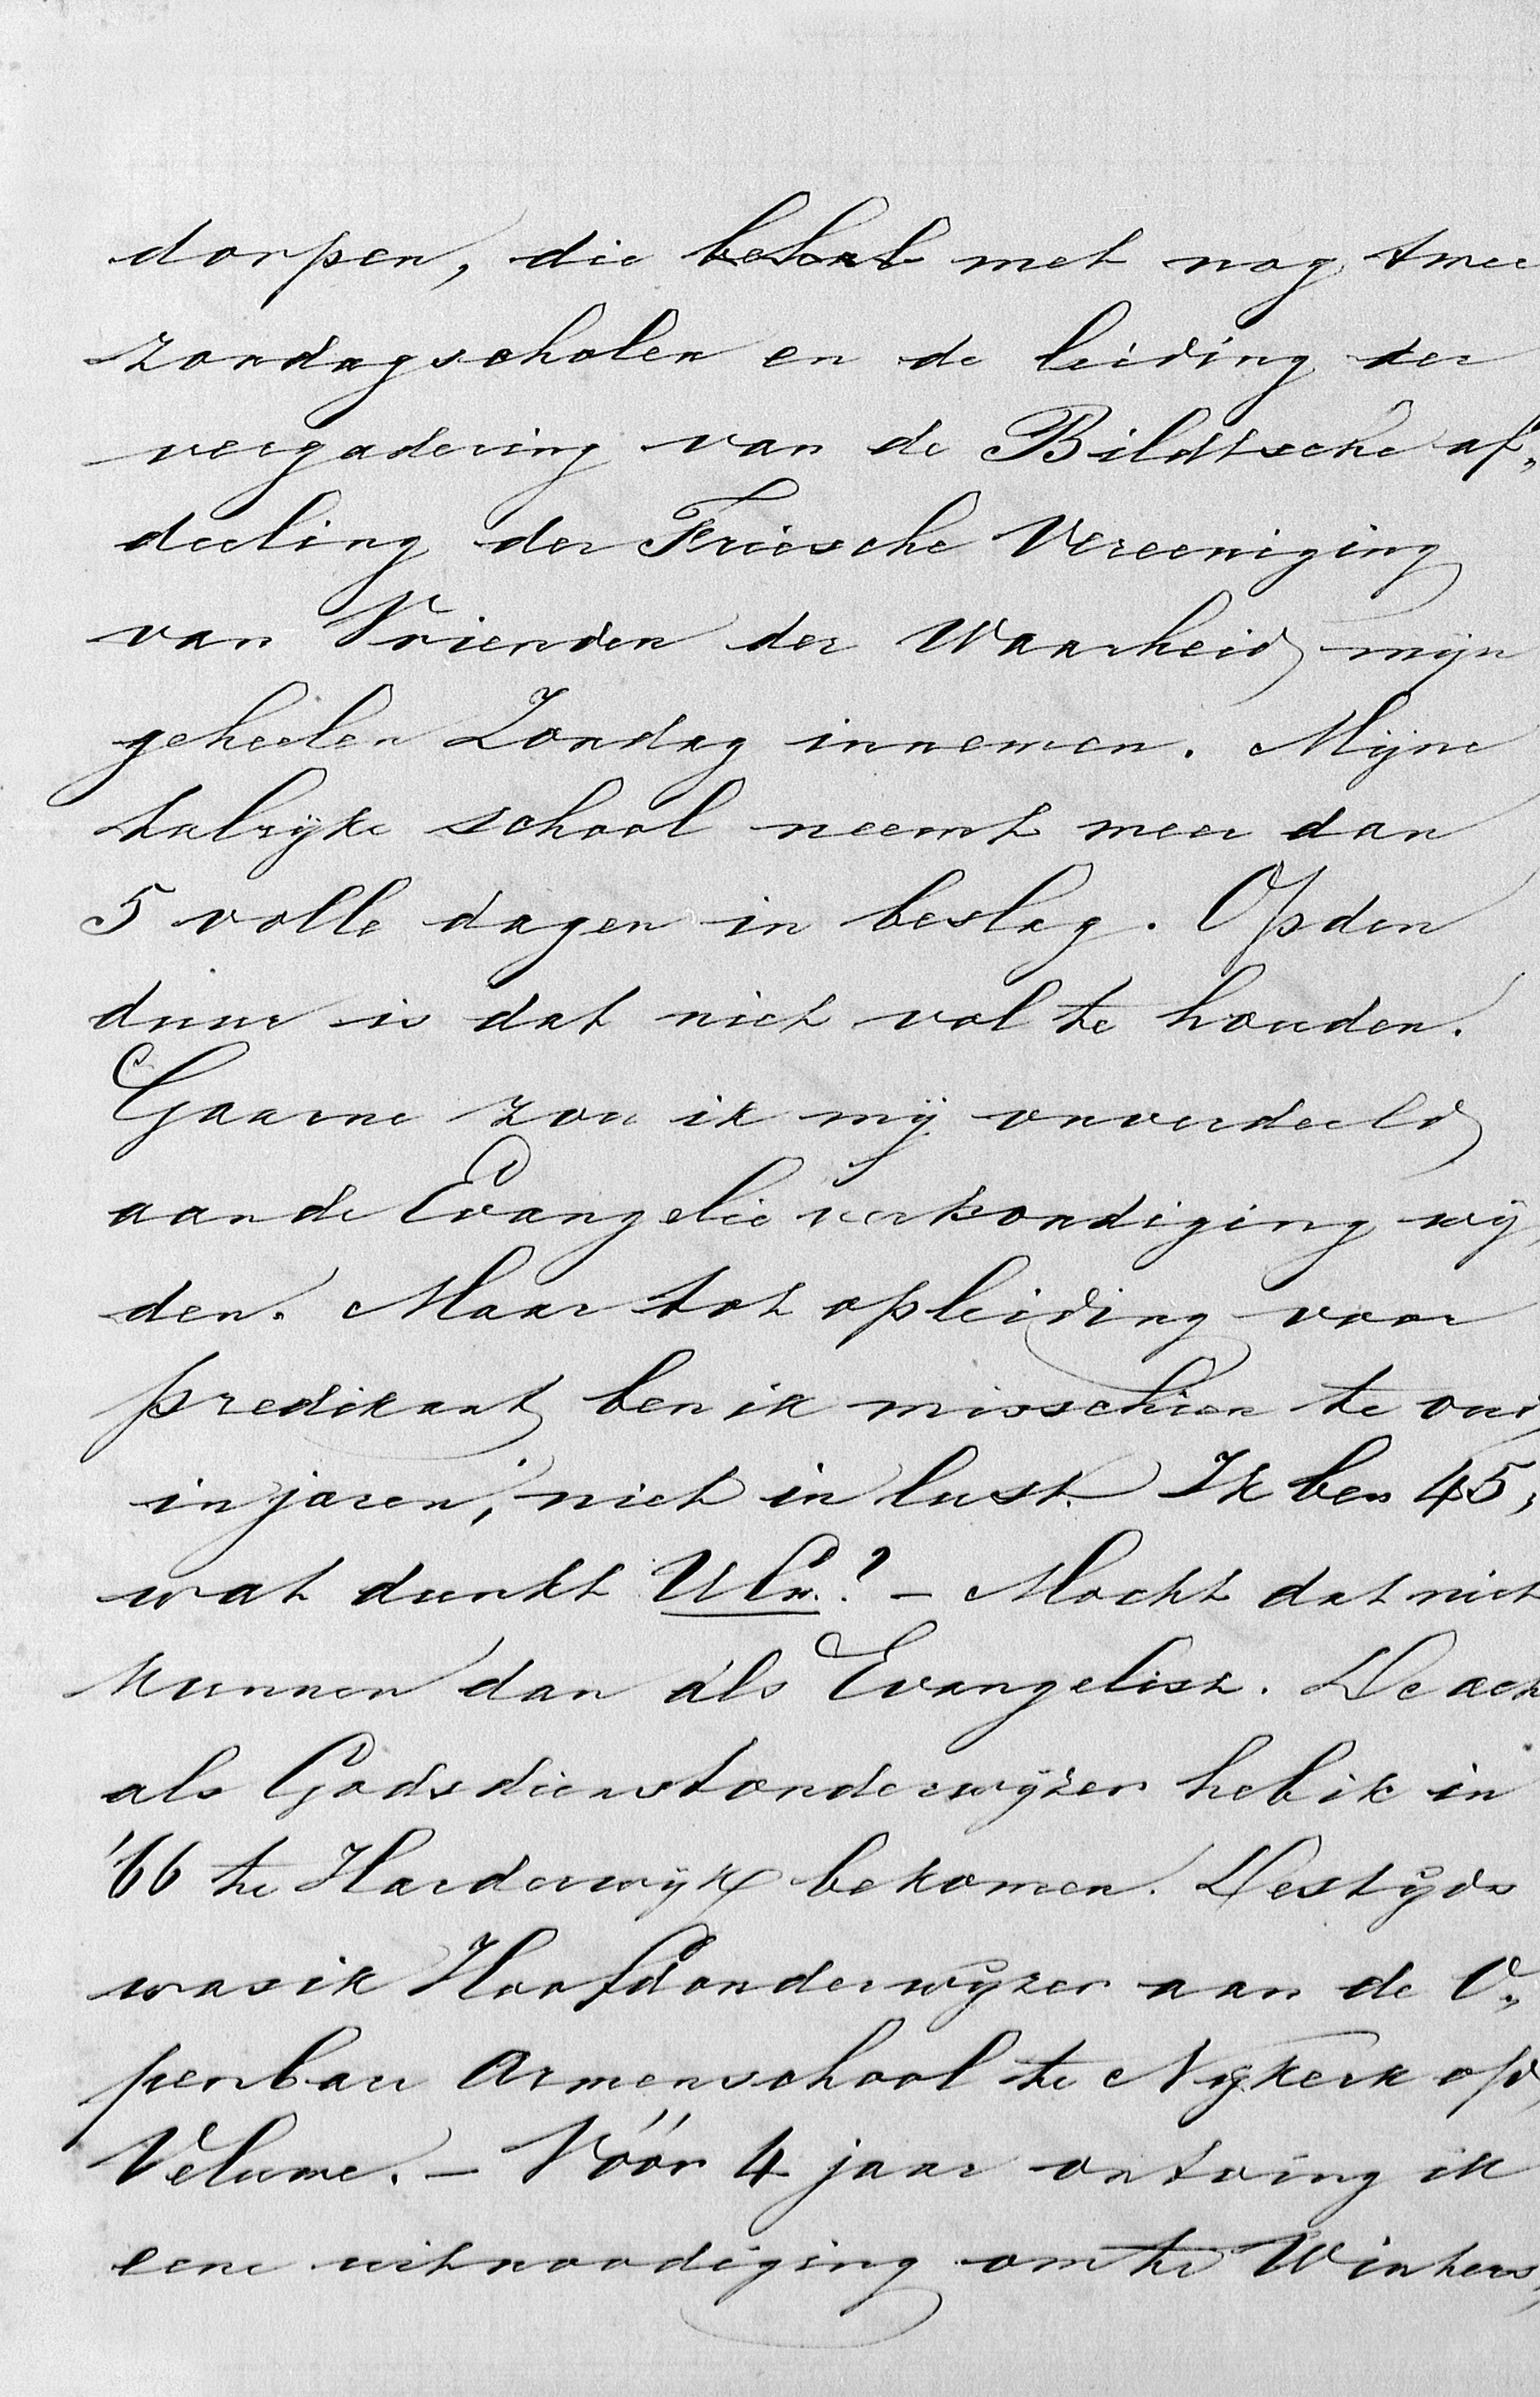 dorpen, die met nog twee
zondagscholen en de leiding der
vergadering van de Bildtsche af„
deeling der Friesche Vereeniging
van Vrienden der Waarheid mijn
geheelen Zondag innemen. Mijne
talrijke school neemt meer dan
5 volle dagen in beslag. Op den
duur is dat niet vol te houden.
Gaarne zou ik mij onverdeeld
aan de Evangelieverkondiging wij„
den. Maar tot opleiding voor
predikant ben ik misschien te oud
in jaren, niet in lust. Ik ben 45,
wat dunkt UEw.? – Mocht dat niet
kunnen dan als Evangelist. De acte
als Godsdienstonderwijzer heb ik in
'66 te Harderwijk bekomen. Destijds
was ik Hoofdonderwijzer aan de O„
penbare Armenschool te Nijkerk op d
Veluwe. – Vóór 4 jaar ontving ik
eene uitnoodiging om te Winters„